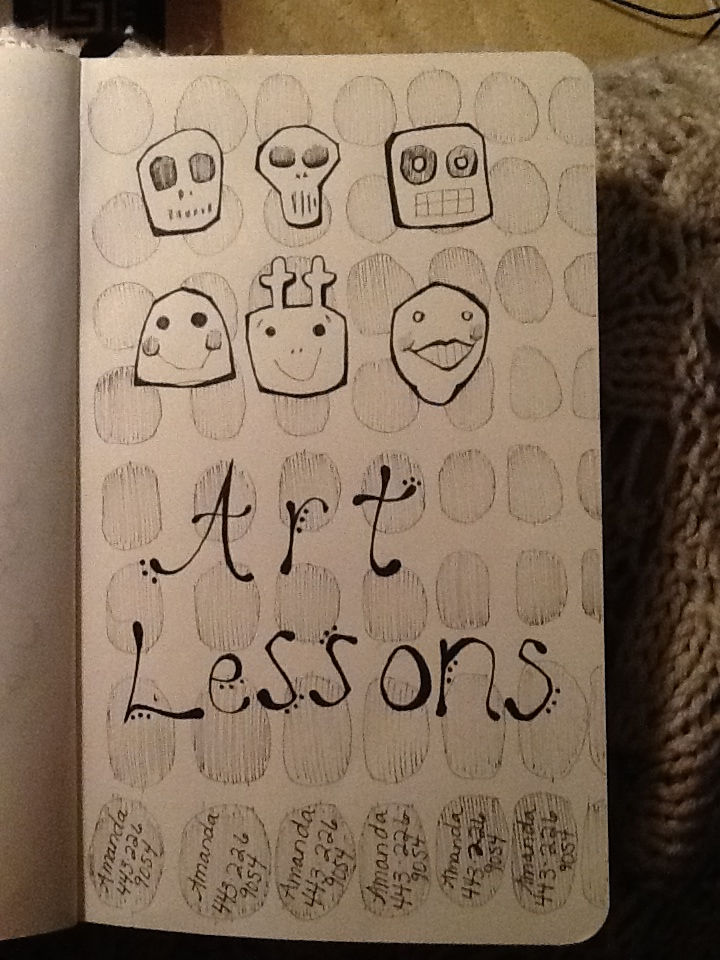 Art
Lessons
Amanda
443-226
9054
Amanda
443-226
9054
Amanda
443-226
9054
Amanda
443-226
9054
Amanda
443-226
9054
Amanda
443-226
9054